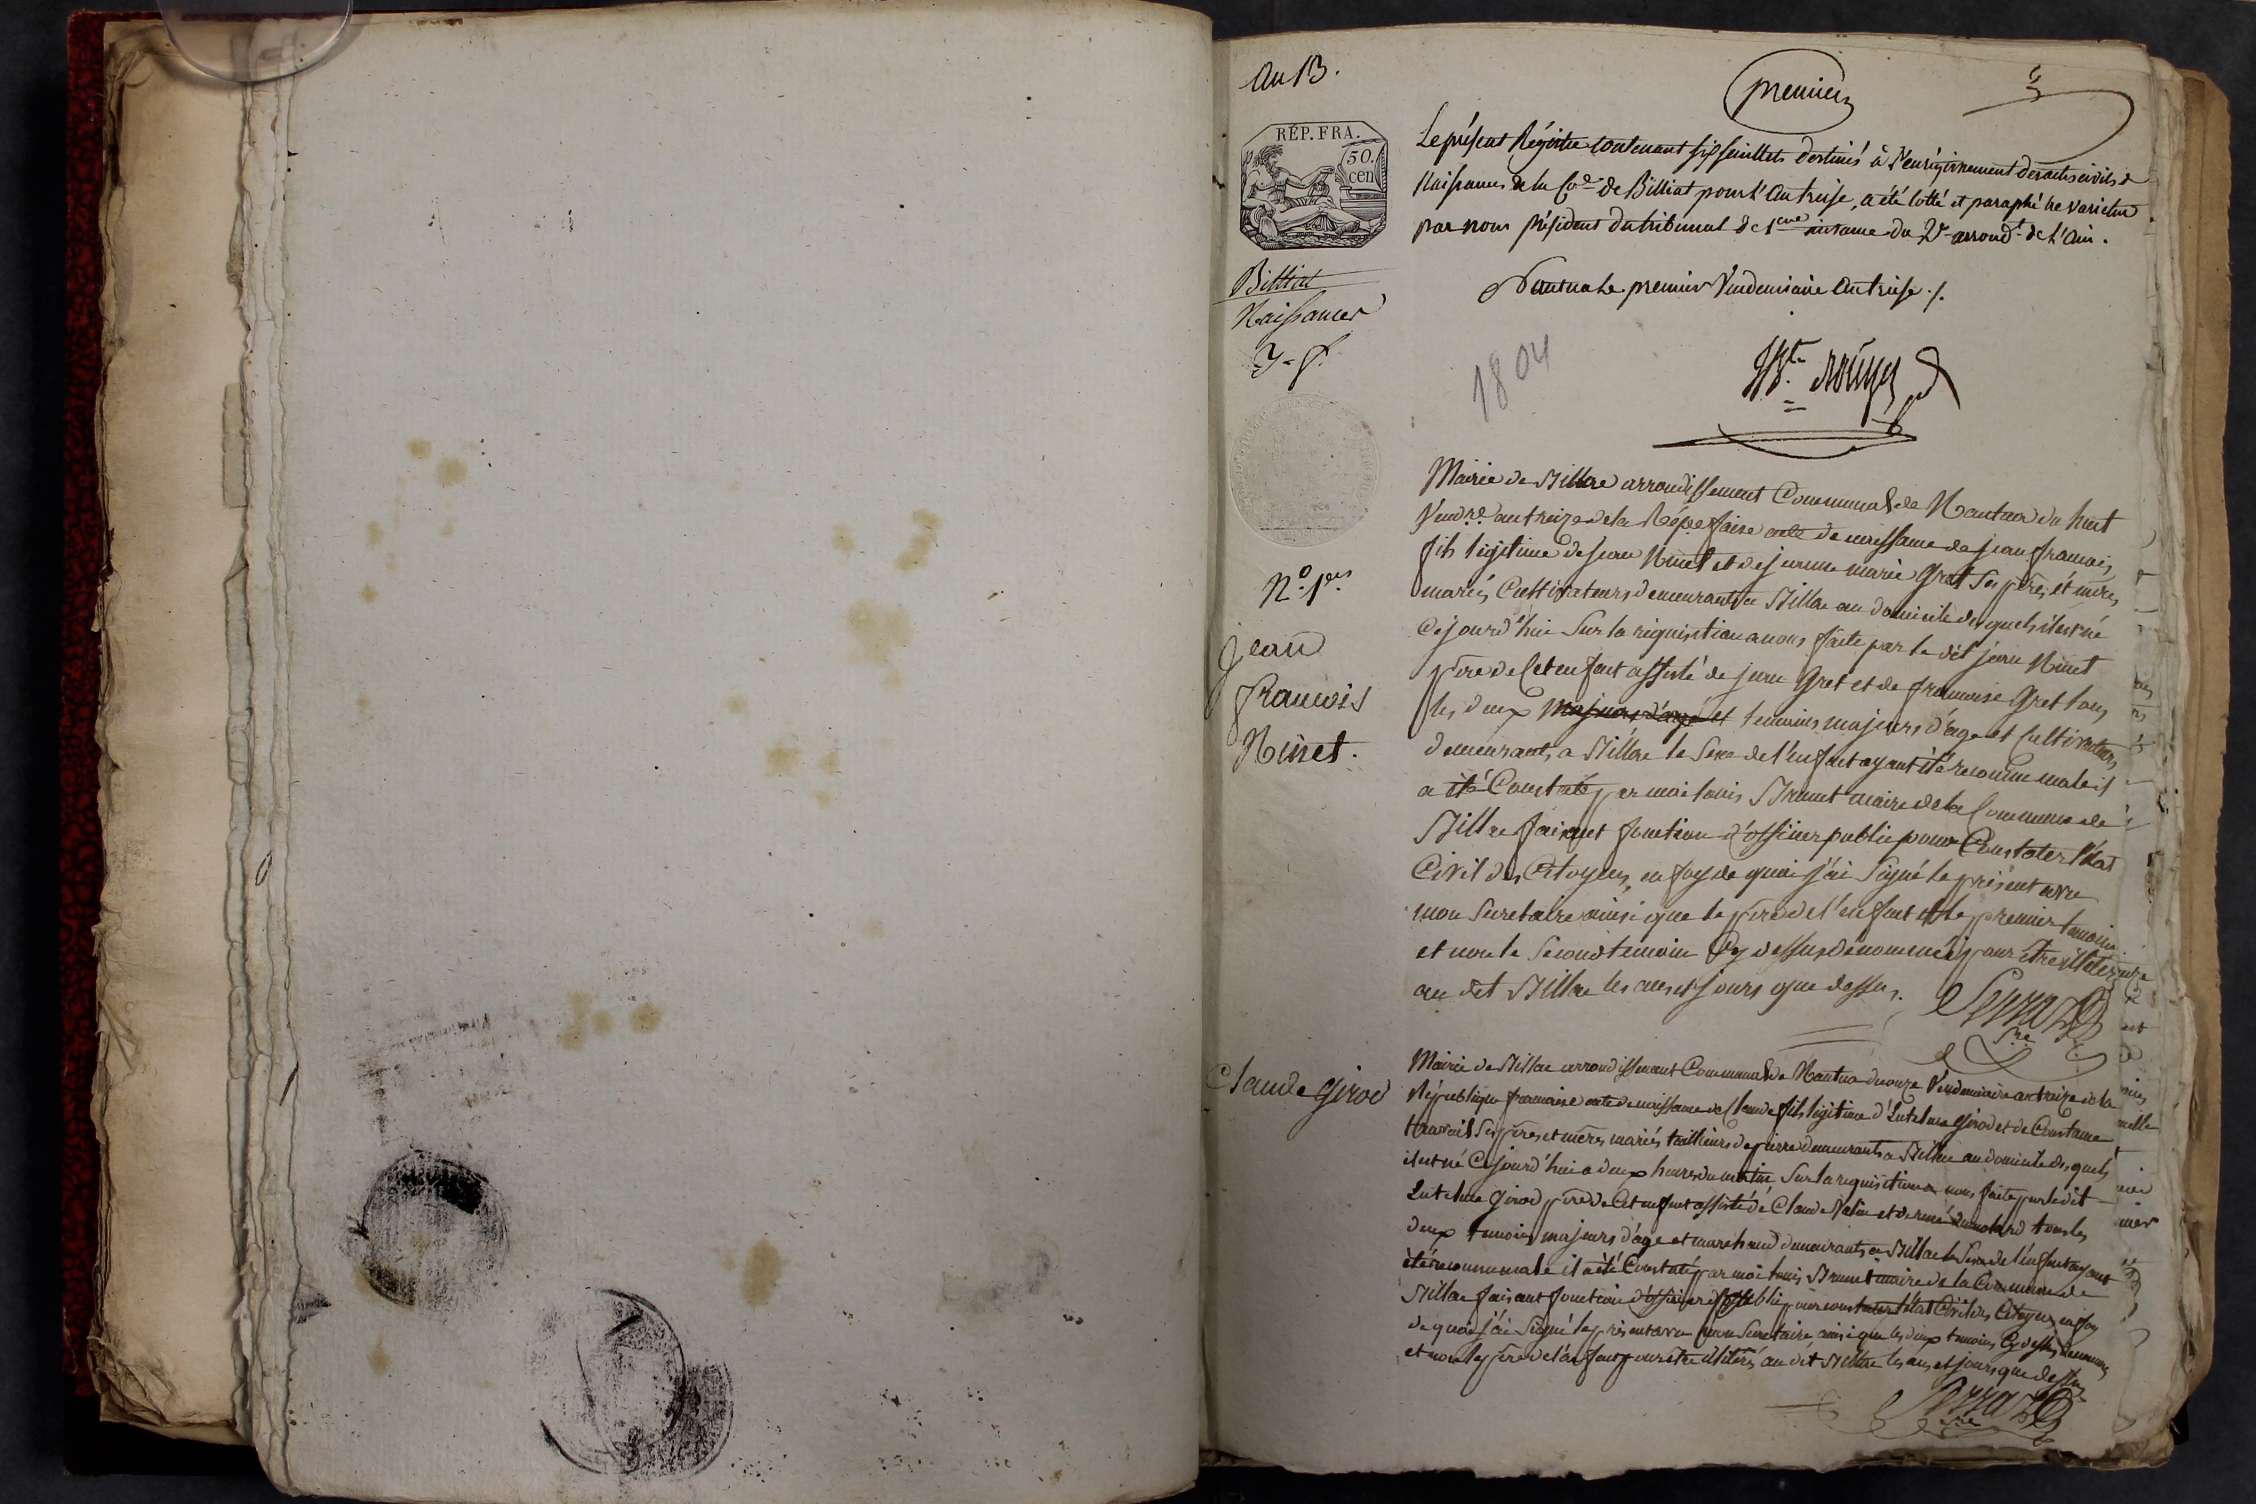 an 13.
premier
RÉP. FRA.
50.
cen
Le présent Régistre contenant six feuillets destinés à l'enrégistrement des actes civils de
Naissances de la Cne de Billiat pour l'an treise, a été cotté et paraphé ne varietur
par nous président du tribunal de 1ere instance du 2e arrondt de l'Ain.
Nantua le premier Vendemiaire an treise ./.
Billiat
Naissances
1804
Mairie de Billiae arrondissement Communal de Nantua du huit
Vend.re an treize de la Rép.e faise acte de naissance de jean francois
fils légitime de jean Ninet et de jeanne marie Gret ses pères et mères
mariés Cultivateurs demeurants a Billiae au domicile des quels il est né
Cejourd'hui Sur la réquisition a nous faite par le dit jean Ninet
père de Cet enfant assisté de jean Gret et de francoise Gret tous
les deux majeurs d'age et temoins majeurs d'age et Cultivateurs
demeurants a Billiae le Sexe de l'enfant ayant été reconnu male il
a été Constaté par moi louis Brunet maire de la Commune de
Billiae faisant fonction d'officier public pour Constater l'état
Civil des Citoyens, en foy de quoi j'ai Signé le présent avec
mon Secretaire ainsi que le père de l'enfant et le premier temoin
et non le Second temoin Cy dessus dénommé pour être
au dit Billiae les ans et jours que dessus.
N.o 1.er
jean
francois
Ninet.
Claude Girod
Mairie de Billiae arrondissement Communal de Nantua du onze Vendemiaire an treize de la
République francaise acte de naissance de Claude fils légitime d'Antelme Girod et de Constance
Ses pères et mères mariés tailleurs de pierre demeurants a Billiae au domicile des quels
il est né Cejourd'hui a deux heures du matin Sur la réquisition a nous faite par le dit
Antelme Girod père de Cet enfant assisté de Claude et de rené tous les
deux temoins majeurs d'age et marchand demeurants a Billiae le Sexe de l'enfant ayant
été reconnu male il a été Constaté par moi louis Brunet maire de la Commune de
Billiae faisant fonction d'officier public pour constater l'état Civil des Citoyens en foy
de quoi j'ai Signé le présent avec mon Secretaire ainsi que les deux temoins Cy dessus dénommés
et non le père de l'enfant pour être au dit Billiae les ans et jours que dessus